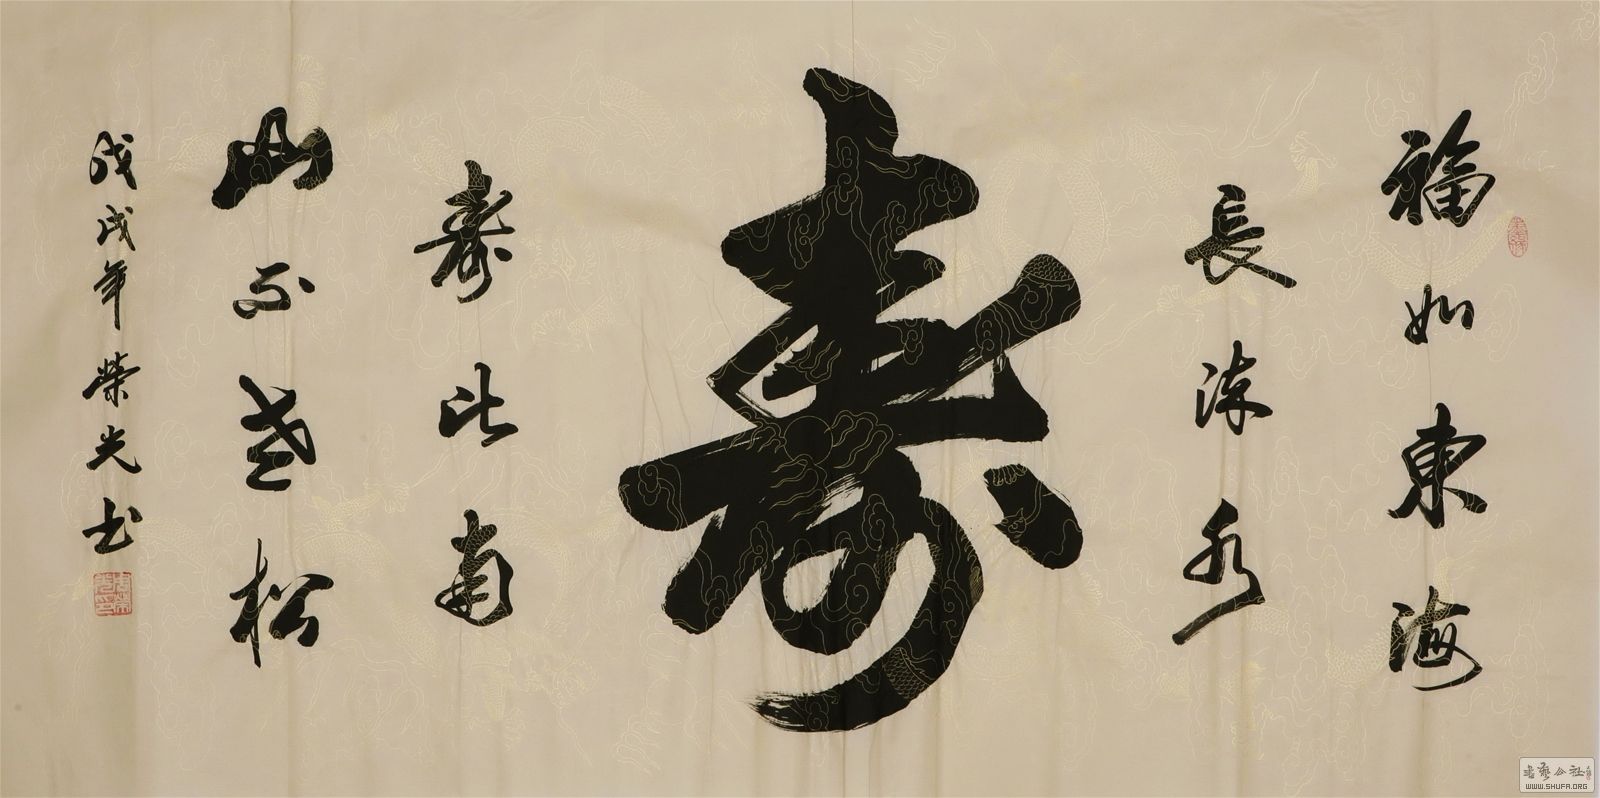 福如東海
長流水
壽
壽比南
山不老松
戊戌年榮光书
書藝公社
WWW.SHUFA.ORG